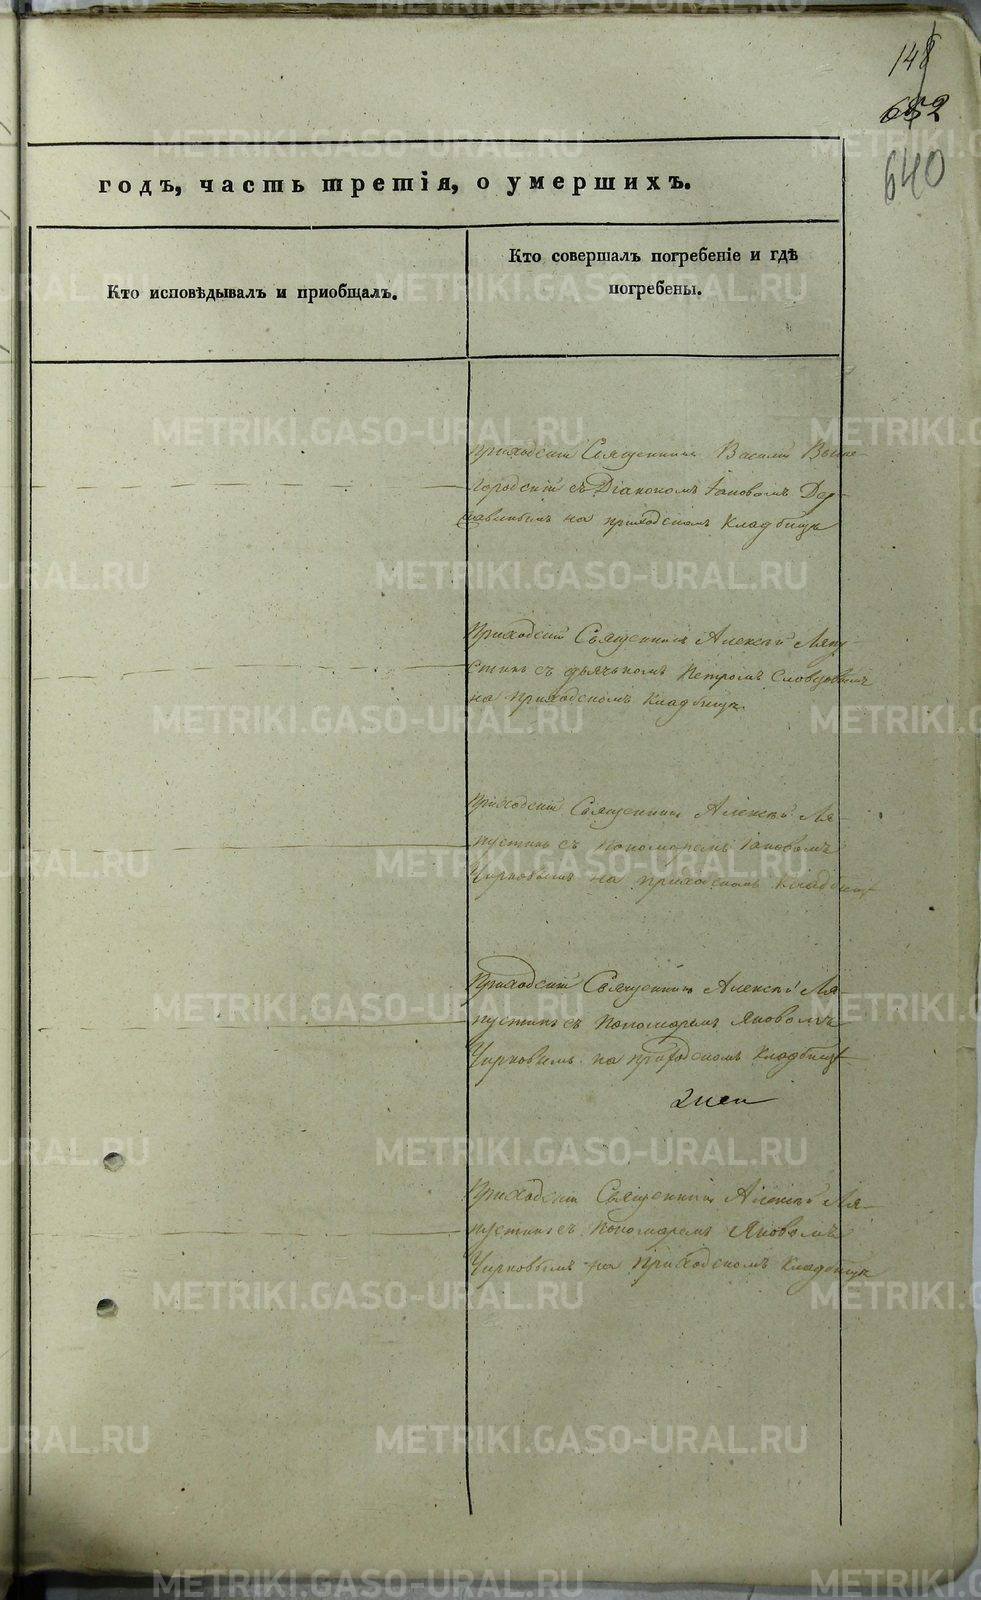 148
652
640
годъ, часть третія, о умершихъ.
Кто исповѣдывалъ и приобщалъ.
Кто совершалъ погребеніе и гдѣ
погребены.
Приходскій Священникъ Василій Выше-
городскій съ Діакономъ Іаковомъ
на приходскомъ Кладбищѣ
Приходскій Священникъ Алексѣй Ляпу-
стинъ съ дьячькомъ Петромъ Словцовымъ
на Приходскомъ Кладбищѣ.
Приходскій Священникъ Алексѣй Ля-
пустинъ съ пономаремъ Іаковомъ
Чирковымъ на приходскомъ Кладбищѣ
Приходскій Священникъ Алексѣй Ля-
пустинъ съ Пономаремъ Яковомъ
Чирковымъ на приходскомъ Кладбищѣ
Приходскій Священникъ Алексѣй Ля-
пустинъ съ Пономаремъ Яковомъ
Чирковымъ на Приходскомъ Кладбищѣ
METRIKI.GASO-URAL.RU